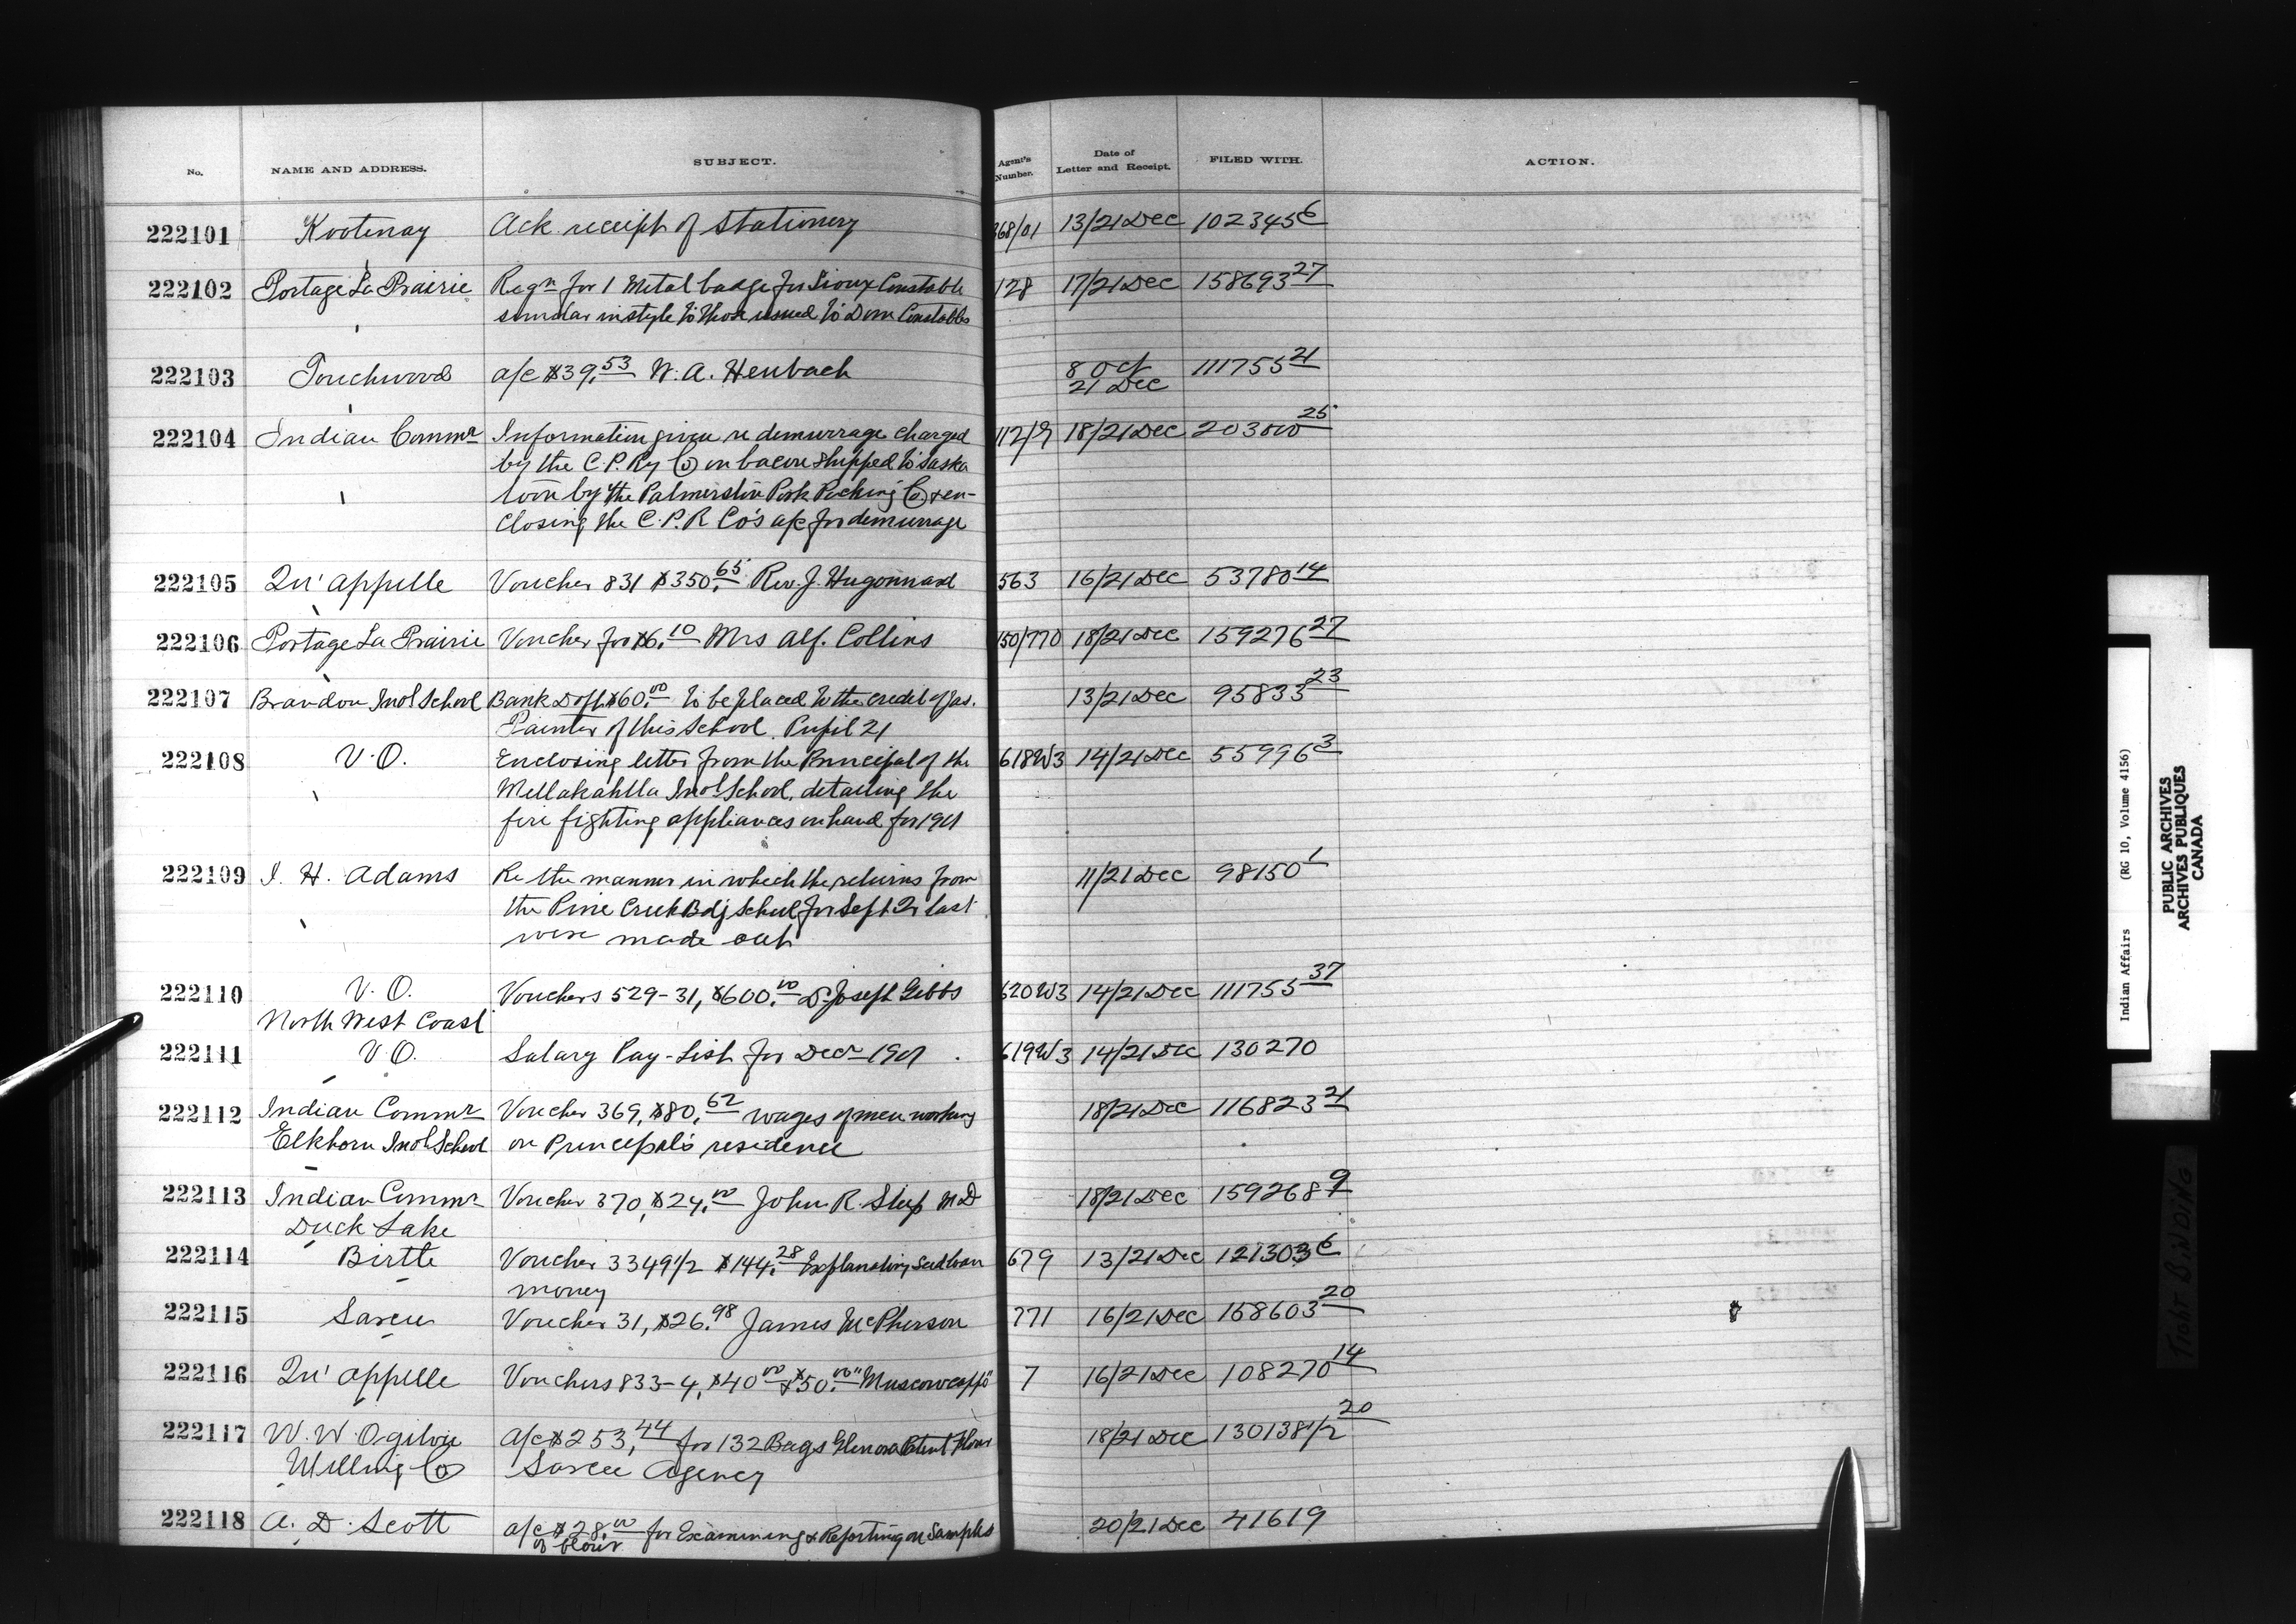 No. NAME AND ADDRESS. SUBJECT. Agent's Number. Date of Letter and Receipt. FILED WITH. ACTION.
222101 Kootenay Ack receipt of Stationery 368/01 13/21 Dec 102345 6
222102 Portage La Prairie Reqn for 1 Metal badge for Sioux Constable 128 17/21 Dec 158693 27
similar in style to those issued to Dom Constables
222103 Touchwood a/c $39.53 W. A. Heubach 8 Oct 111755 21
21 Dec
222104 Indian Commr Information given re demurrage charged 112/9 18/21 Dec 203000 25
by the C. P. Ry Co on bacon shipped to Saska
toon by the Palmerston Pork Packing Co & en-
closing the C. P. R Co's a/c for demurrage
222105 Qu'appelle Voucher 831 $350.65 Rev. J. Hugonnard 563 16/21 Dec 53780 14
222106 Portage La Prairie Voucher for $6.10 Mrs Alf. Collins 150/770 18/21 Dec 159276 27
222107 Brandon Indl School Bank Dft $60.00 to be placed to the credit of Jas. 13/21 Dec 95833 23
Painter of this School. Pupil 21
222108 V. O. Enclosing letter from the Principal of the 618W3 14/21 Dec 55996 3
Metlakahtla Indl School. detailing the
fire fighting appliances on hand for 1901
222109 J. H. Adams Re the manner in which the returns from 11/21 Dec 98150 1
the Pine Creek Bdg School for Sept Qr last
were made out
222110 V. O. Vouchers 529-31, $600.00 Dr Joseph Gibbs 620W3 14/21 Dec 111755 37
North West Coast
222111 V. O. Salary Pay-List for Decr 1901. 619W3 14/21 Dec 130270
222112 Indian Commr Voucher 369, $80.62 wages of men working 18/21 Dec 116823 21
Elkhorn Indl School on Principal's residence
222113 Indian Commr Voucher 370, $24.00 John R. Steep M D 18/21 Dec 159268 9
Duck Lake
222114 Birtle Voucher 3349 1/2 $144.28 Explanation Seed loan 679 13/21 Dec 121303 6
money
222115 Sarcee Voucher 31, $26.98 James McPherson 771 16/21 Dec 158603 20
222116 Qu'appelle Vouchers 833-4, $40.00 & $50.00 "Muscowcappo" 7 16/21 Dec 108270 14
222117 W. W Ogilvie a/c $253.44 for 132 Bags Glenora Patent Flour 18/21 Dec 130138 1/2 20
Milling Co Sarcee Agency
222118 A. D. Scott a/c $28.00 for Examining & Reporting on Samples 20/21 Dec 41619
of flour
Indian Affairs (RG 10, Volume 4156)
PUBLIC ARCHIVES
ARCHIVES PUBLIQUES
CANADA
TIGHT BINDING